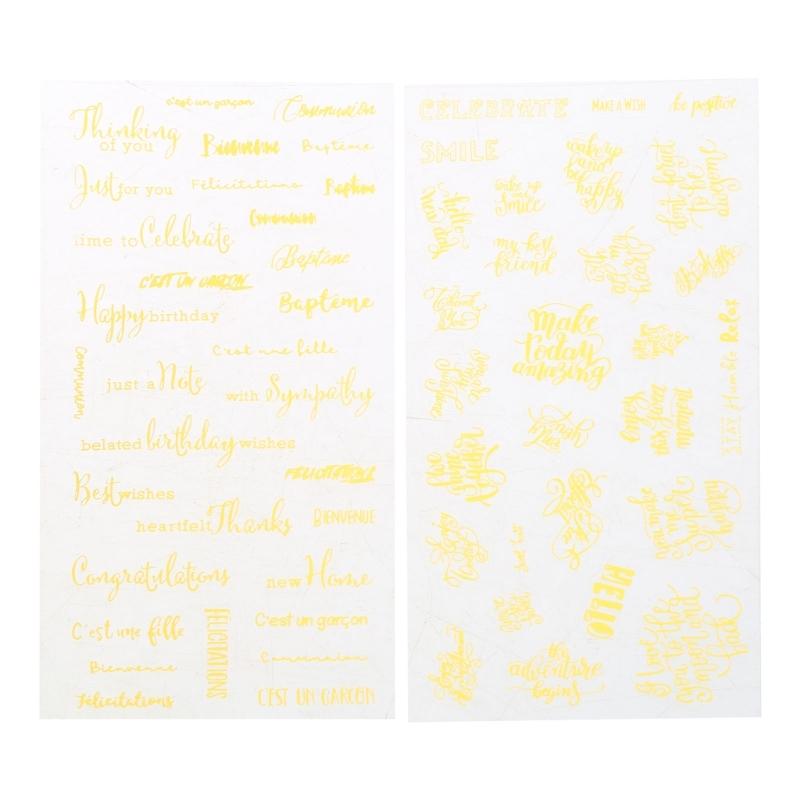 c'est un garçon
Communion
Thinking
of you
Bienvenue
Baptême
Just for you
Félicitations
Baptême
Communion
time to Celebrate
Baptême
C'EST UN GARÇON
Happy birthday
Baptême
C'est une fille
Communion
just a Note
with Sympathy
belated birthday wishes
FÉLICITATIONS
Best wishes
heartfelt Thanks
BIENVENUE
Congratulations
new Home
C'est une fille
FÉLICITATIONS
C'est un garçon
Bienvenue
Communion
Félicitations
C'EST UN GARÇON
CELEBRATE
MAKE A WISH
be positive
SMILE
wake up
and
be
happy
don't forget
to be
awesome
wake up
smile
my best
friend
Thank
You
make
today
amazing
STAY Humble Relax
you make
me
super
happy
HELLO
the
adventure
begins
I love you
to the
moon and
back